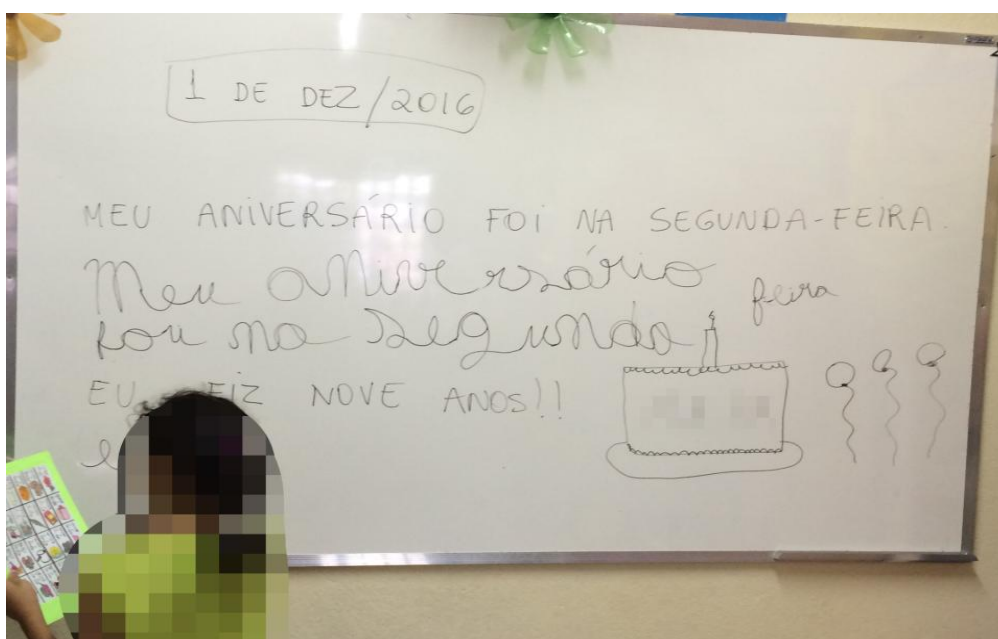 1 DE DEZ/2016
MEU ANIVERSÁRIO FOI NA SEGUNDA-FEIRA.
Meu aniversário
foi na segunda feira
EU FIZ NOVE ANOS!!
e